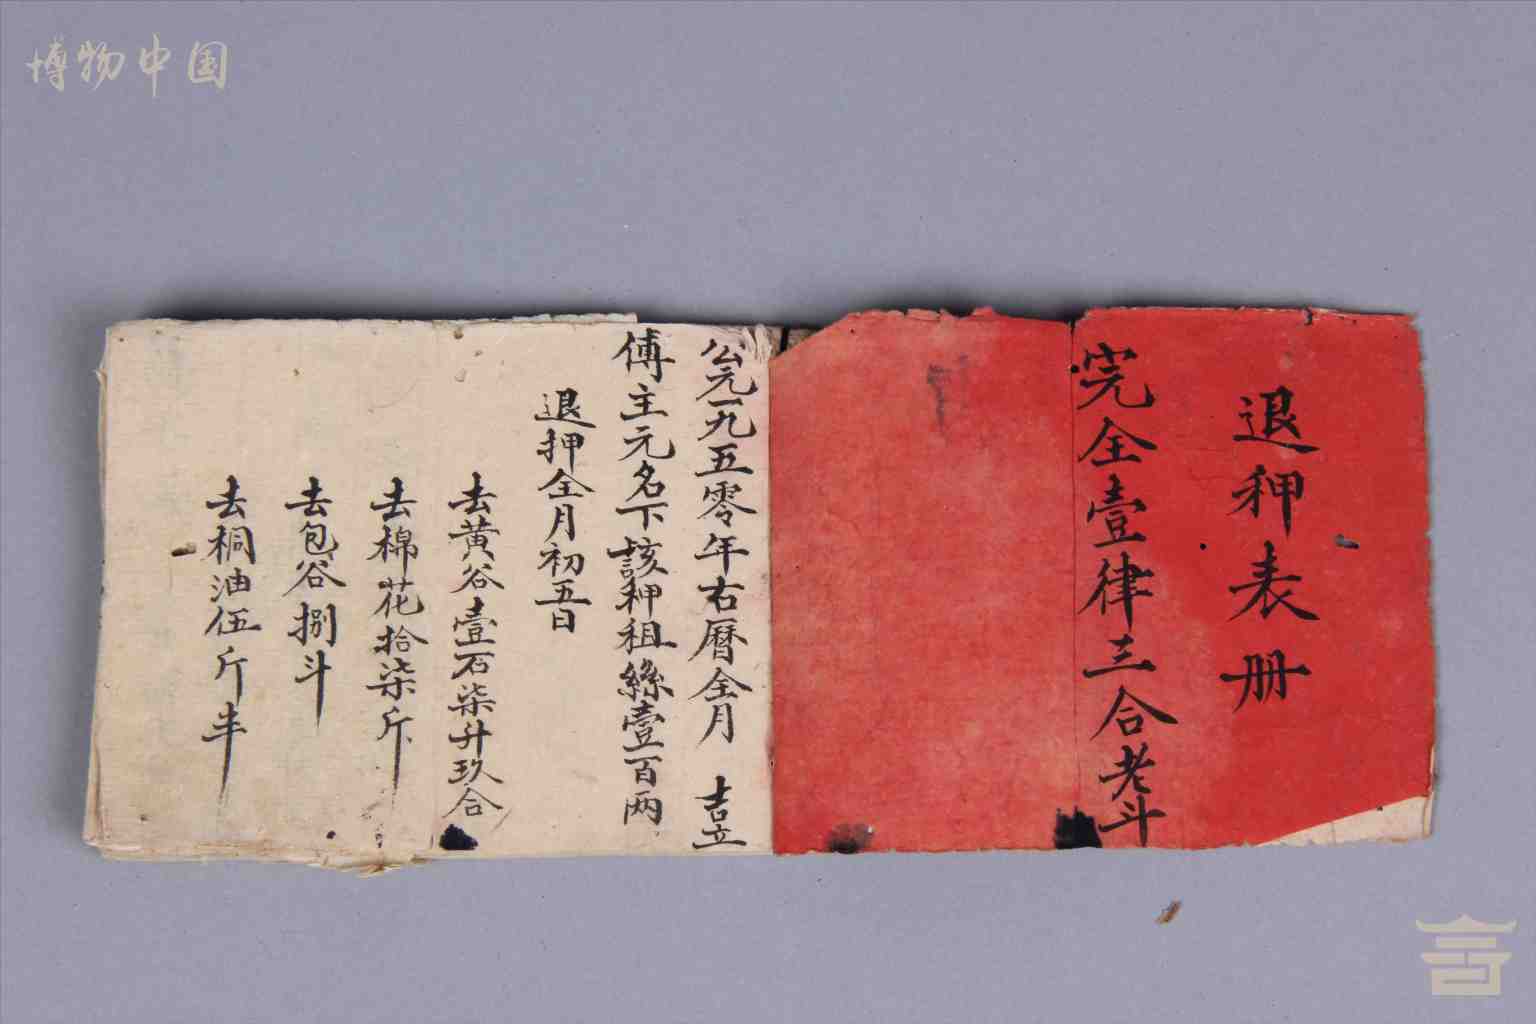 博物中国
退押表册
完全壹律三合老斗
公元一九五零年右曆全月 吉立
傅主元名下該押租絲壹百两
退押全月初五日
去黄谷壹石柒升玖合
去棉花拾柒斤
去包谷捌斗
去桐油伍斤半